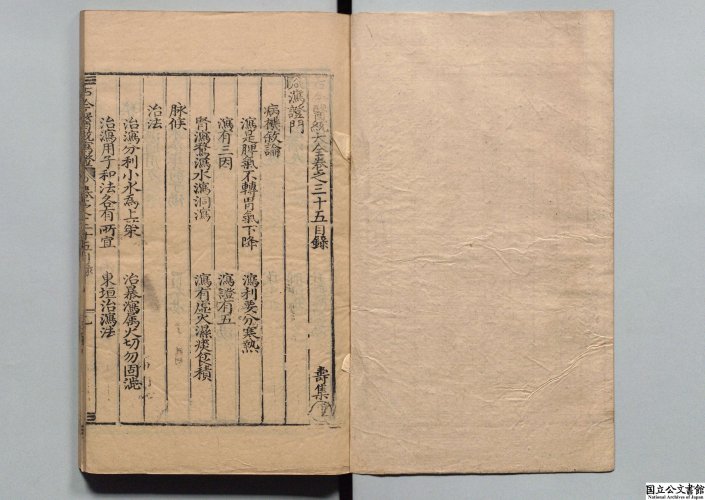 古今醫統大全卷之三十五目錄 壽集
瀉證門
病機敘論
瀉是脾氣不轉胃氣下降 瀉利要分寒熱
瀉有三因 瀉證有五
腎瀉鶩瀉水瀉洞瀉 瀉有虛火濕痰食積
脉候
治法
治瀉分利小水為上策 治暴瀉屬火切勿固澁
治瀉用子和法各有兩宜 東垣治瀉法
國立公文書館
National Archives of Japan